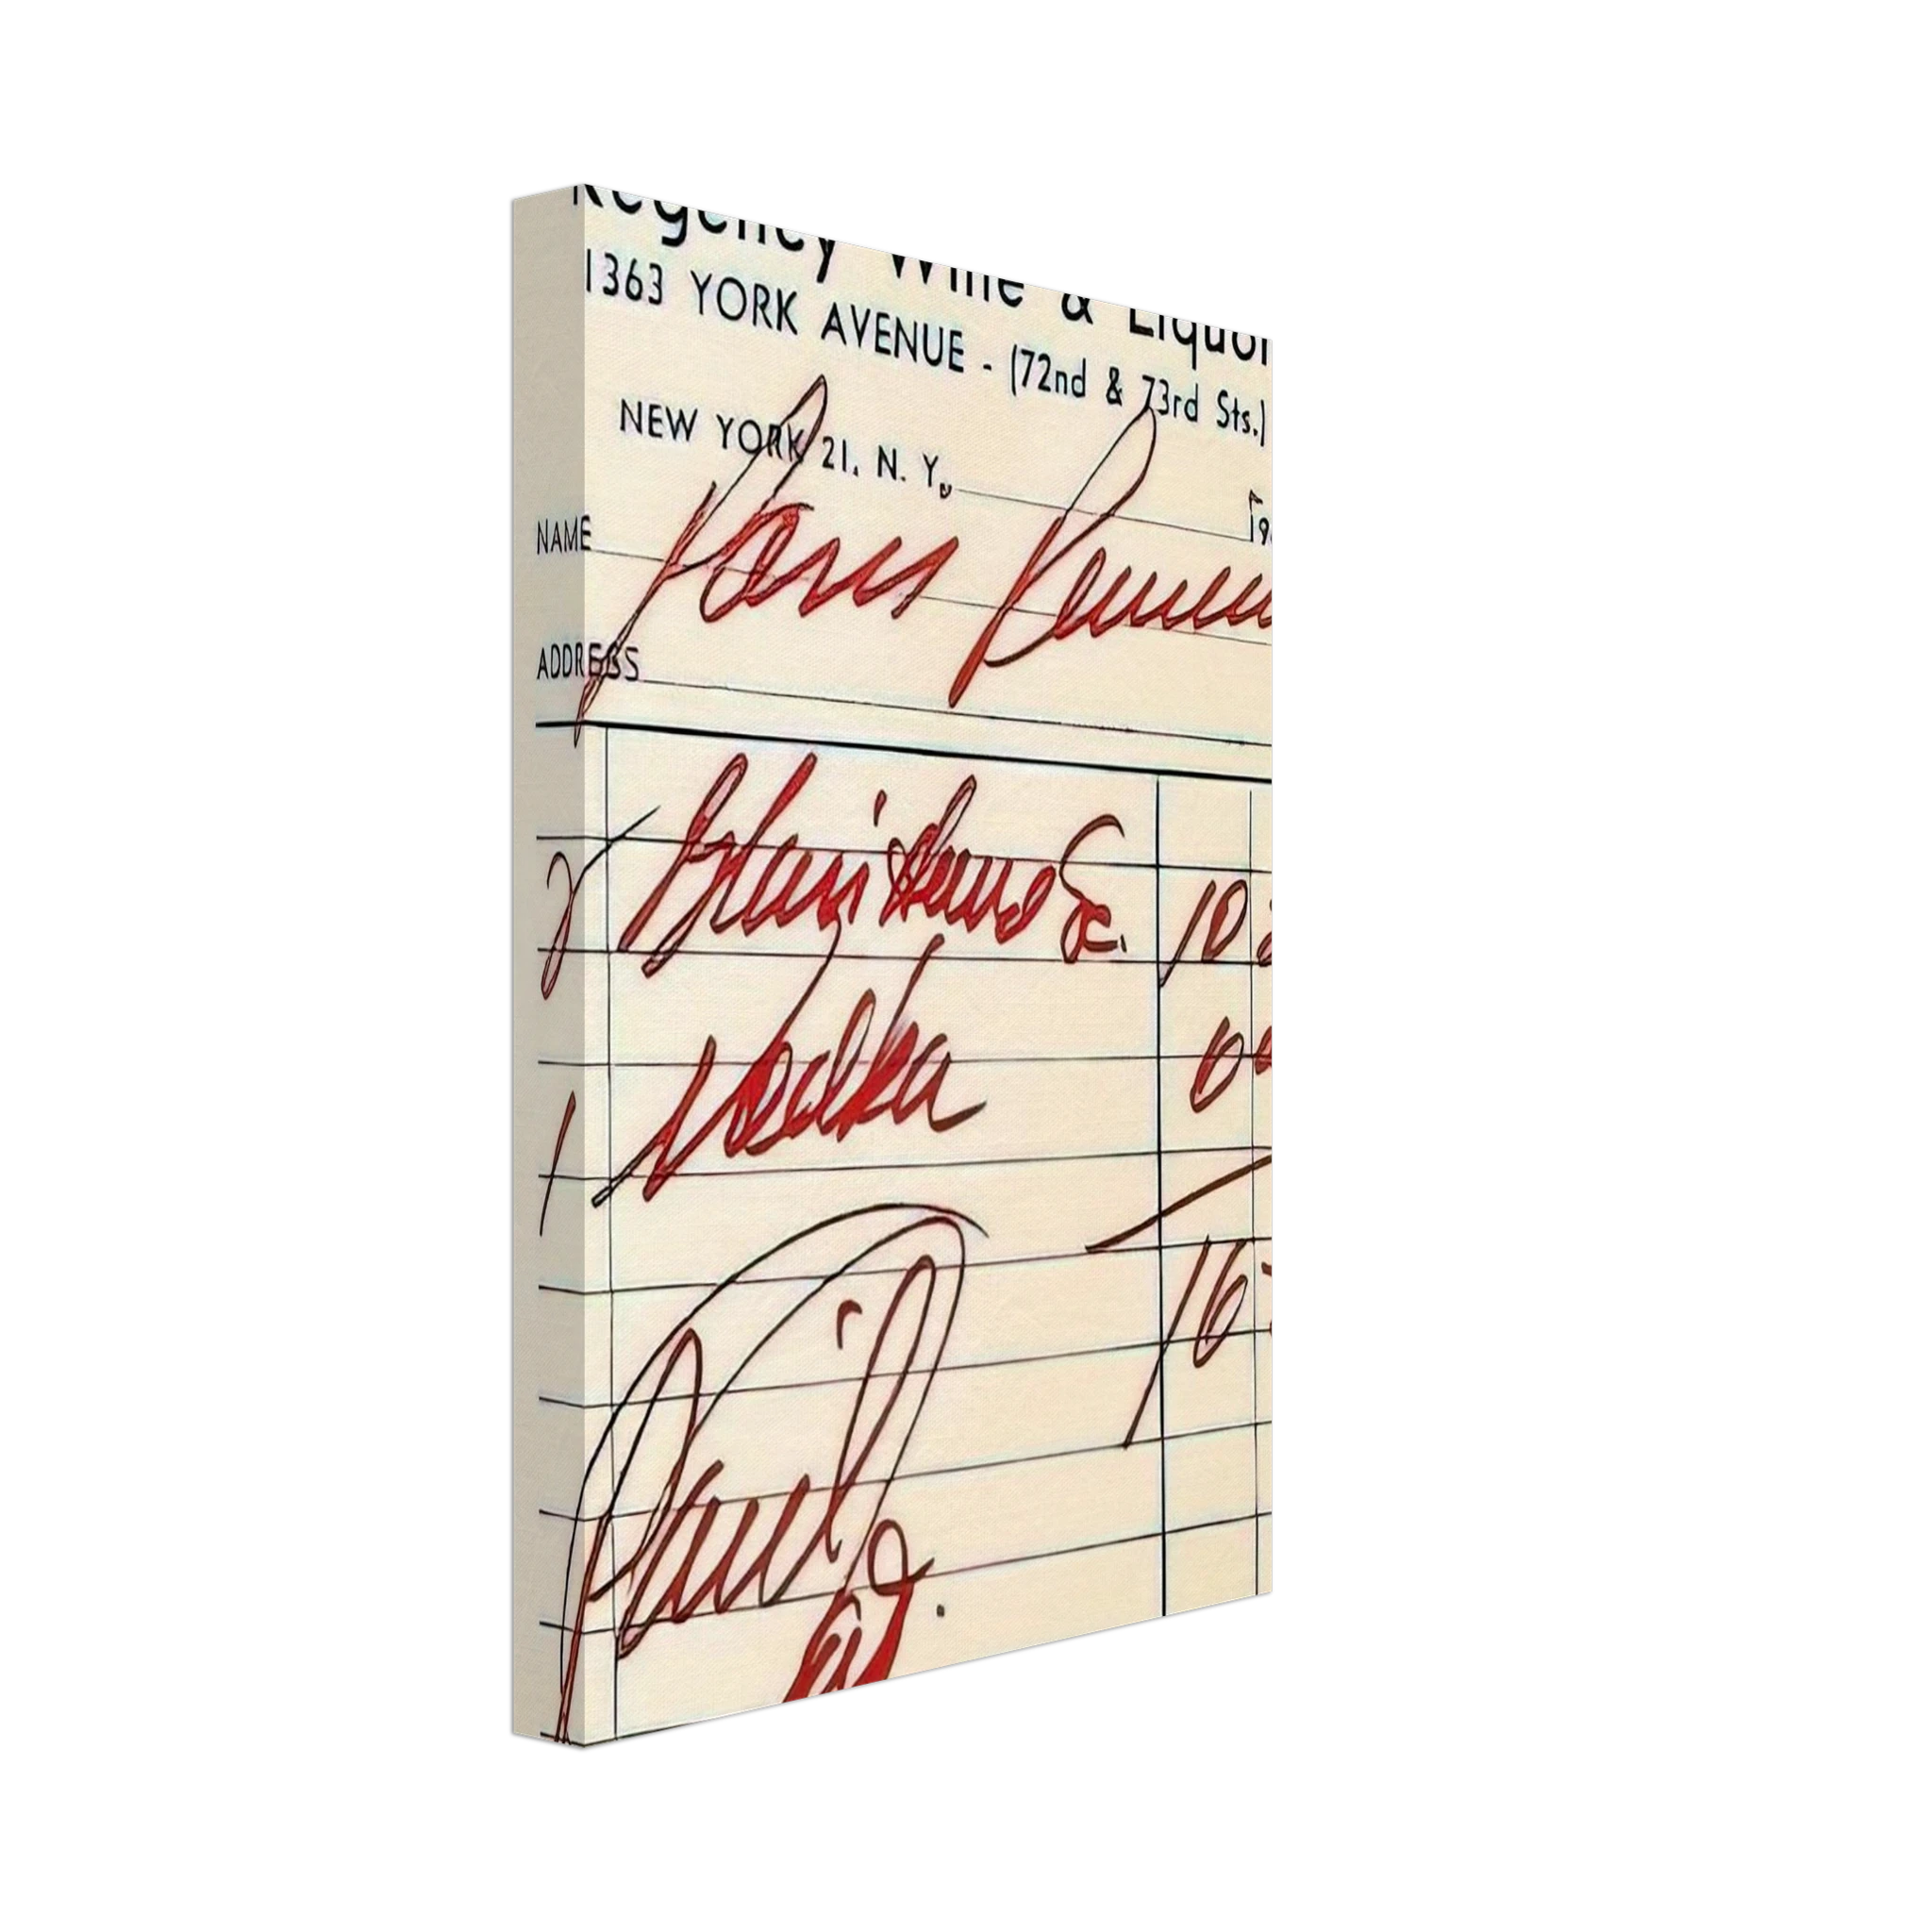 Regency Wine & Liquor
1363 YORK AVENUE - (72nd & 73rd Sts.)
NEW YORK 21, N. Y.
19
NAME Paris
ADDRESS
2 10
1 Vodka 6
16
Paid